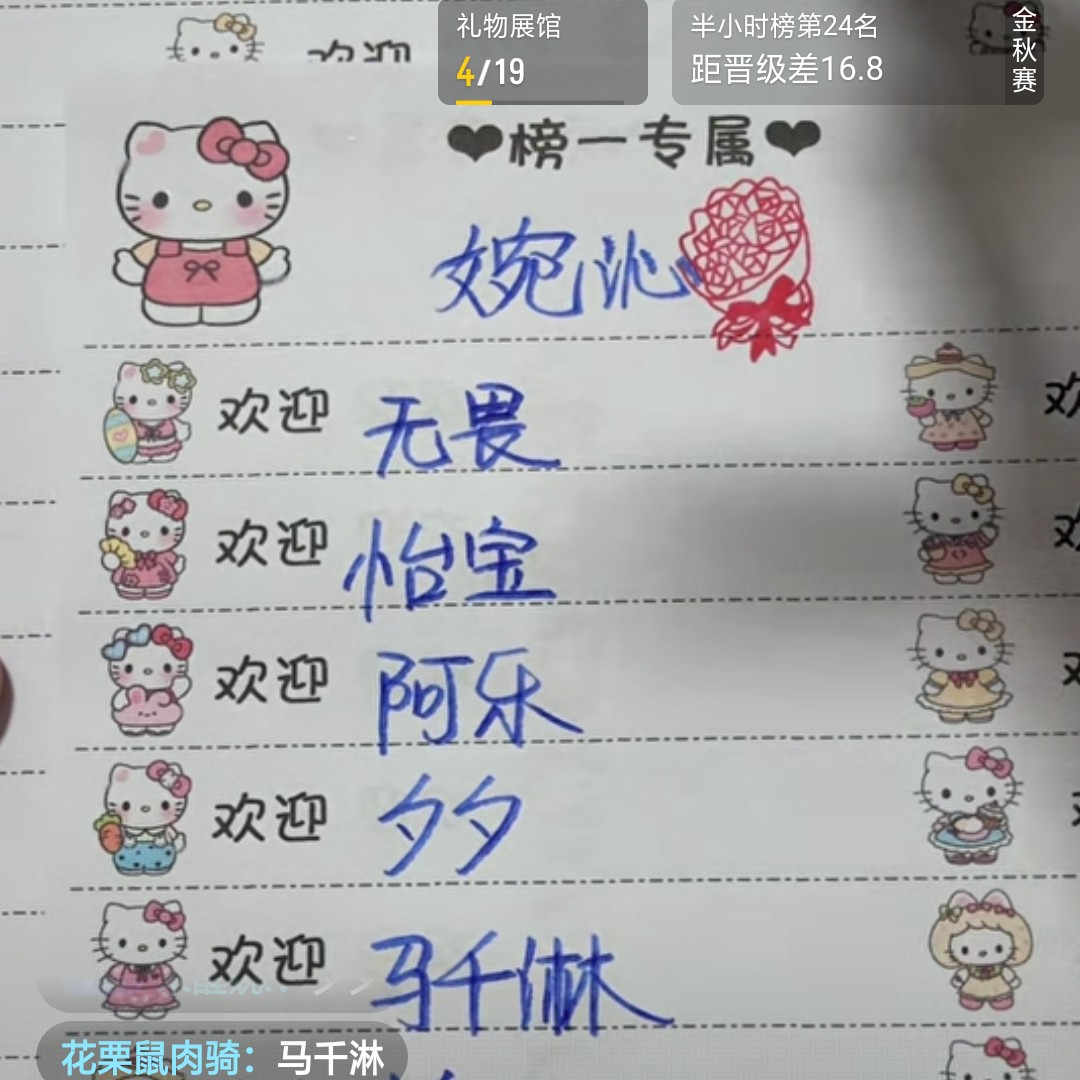 礼物展馆
4/19
半小时榜第24名
距晋级差16.8
金秋赛
欢迎
❤榜一专属❤
婉沁
欢迎 无畏
欢迎 怡宝
欢迎 阿乐
欢迎 夕夕
欢迎 马千淋
花栗鼠肉骑：马千淋